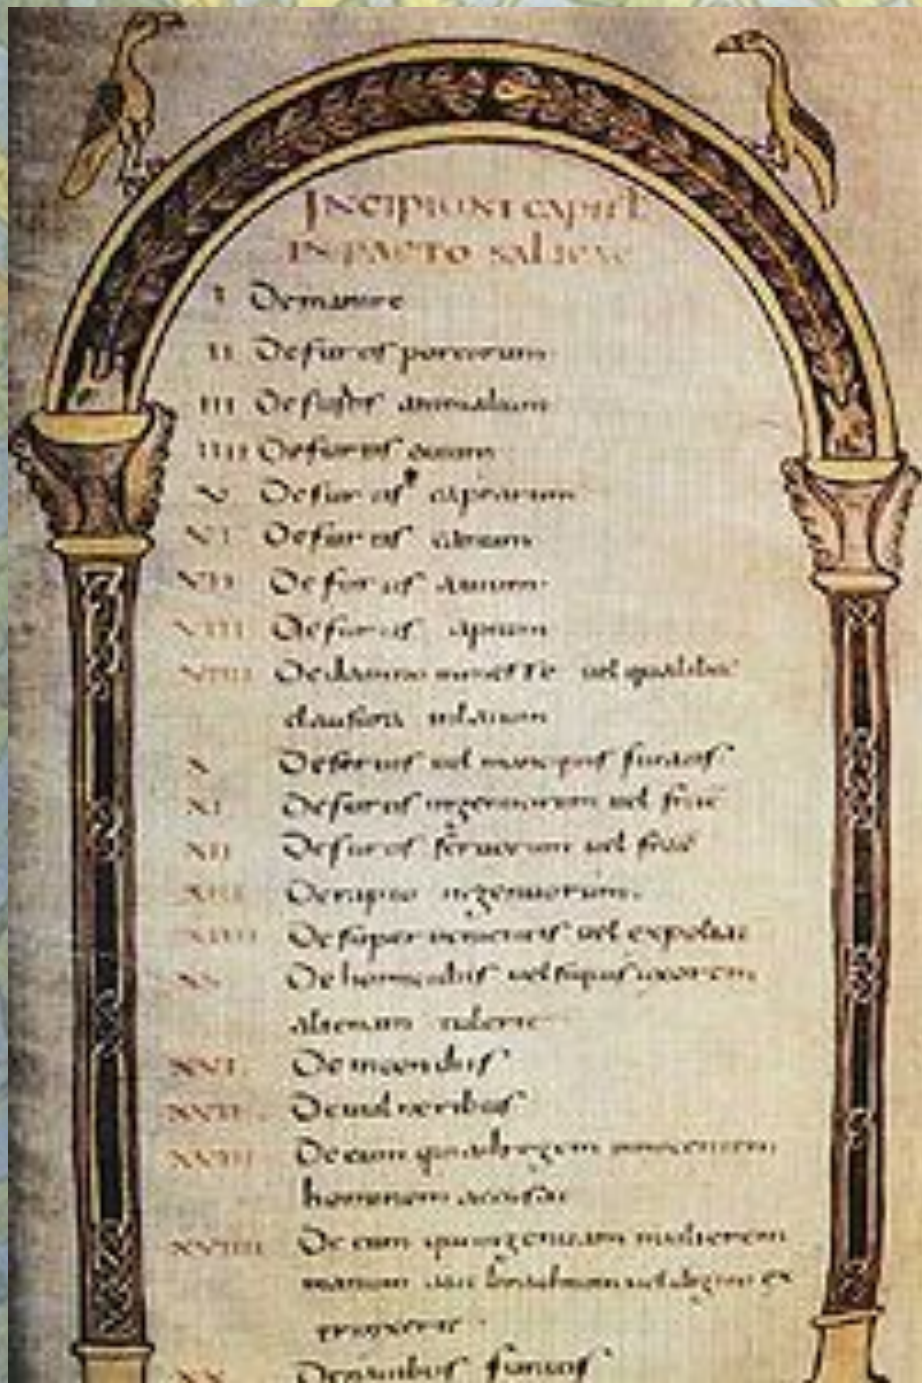 INCIPIUNT CAPITUL
IN PACTO SALICAE
I De mannire
II De furtis porcorum
III De furtis animalium
IIII De furtis ouium
V De furtis caprarum
VI De furtis canum
VII De furtis auium
VIII De furtis apium
VIIII De damno in uel qualibet
clausura
X De seruis uel mancipiis furatis
XI De furtis ingenuorum uel
XII De furtis seruorum uel
XIII De rapto ingenuorum
XIIII De superuenientis uel expoliat
XV De homicidiis uel siquis uxorem
alienam tulerit
XVI De incendiis
XVII De uulneribus
XVIII De eum qui ad regem innocentem
hominem accusat
XVIIII De eum qui ingenuam mulierem
manum uel brachium uel digitum ex
XX De nauibus furatis